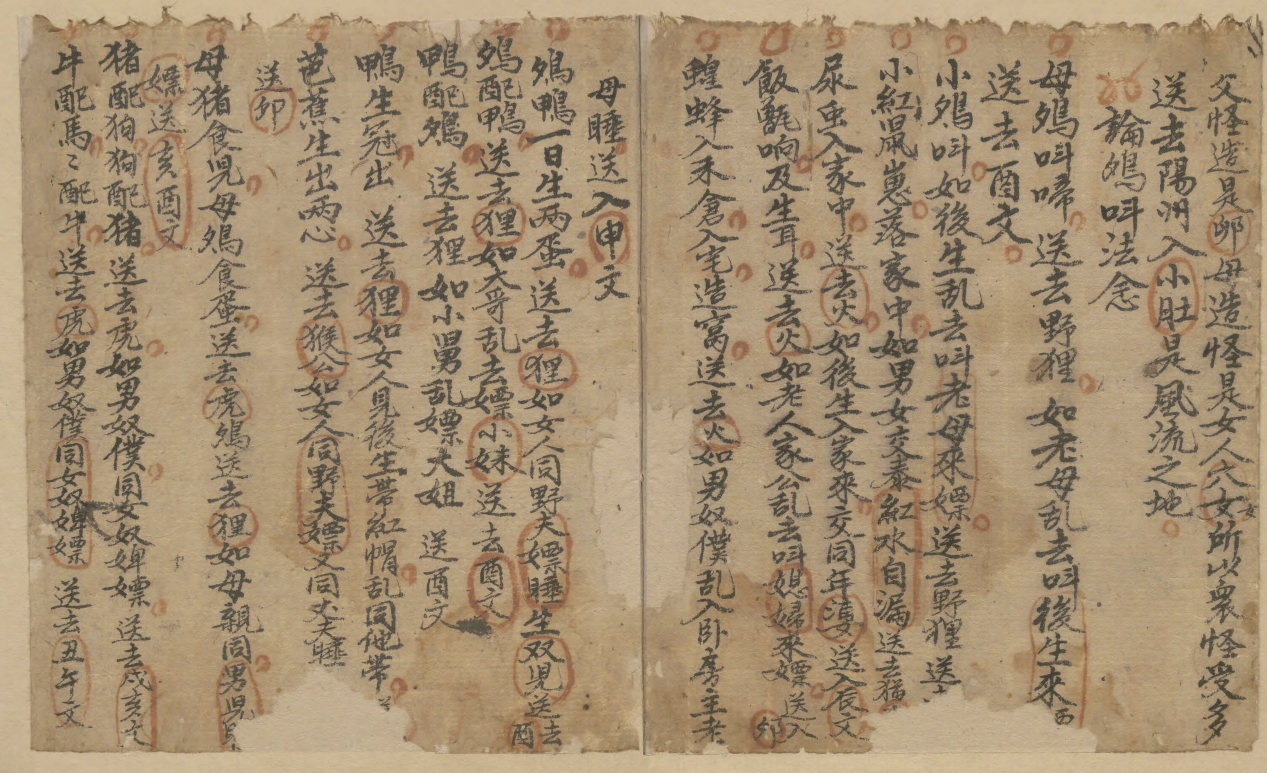 父怪造是邜母造怪是女人六女所以衆怪受多
送去陽州入小肚是風流之地
論鳩呌法念
母鳩呌啼送去野狸如老母乱去呌後生來
送去酉文
小鳩呌如後生乱去呌老母來嫖送去野狸送
小紅鼠崽落家中如男女交泰紅水自漏送去
尿虫入家中送去火如後生入家來交同年送入辰文
飯甑响及生耳送去火如老人家公乱去呌媳婦來嫖送入卯
蝗蜂入禾倉入宅造窩送去火如男奴僕乱入卧房主老
母睡送入申文
鳩鴨一日生两蛋送去狸如女人同野夫嫖睡生双児送去酉
鳩配鴨送去狸如大哥乱去嫖小妹送去酉文
鴨配鳩送去狸如小男乱嫖大姐送酉文
鴨生冠出送去狸如女人見後生帶紅帽乱同他帶
芭蕉生出两心送去猴公如女人同野夫嫖又同丈夫睡
送卯
母猪食児母鳩食蛋送去虎鳩送去狸如母親同男児
嫖送亥酉文
猪配狗狗配猪送去虎如男奴僕同女奴婢嫖送去戌亥文
牛配馬〻配牛送去虎如男奴僕同女奴婢嫖送去丑午文